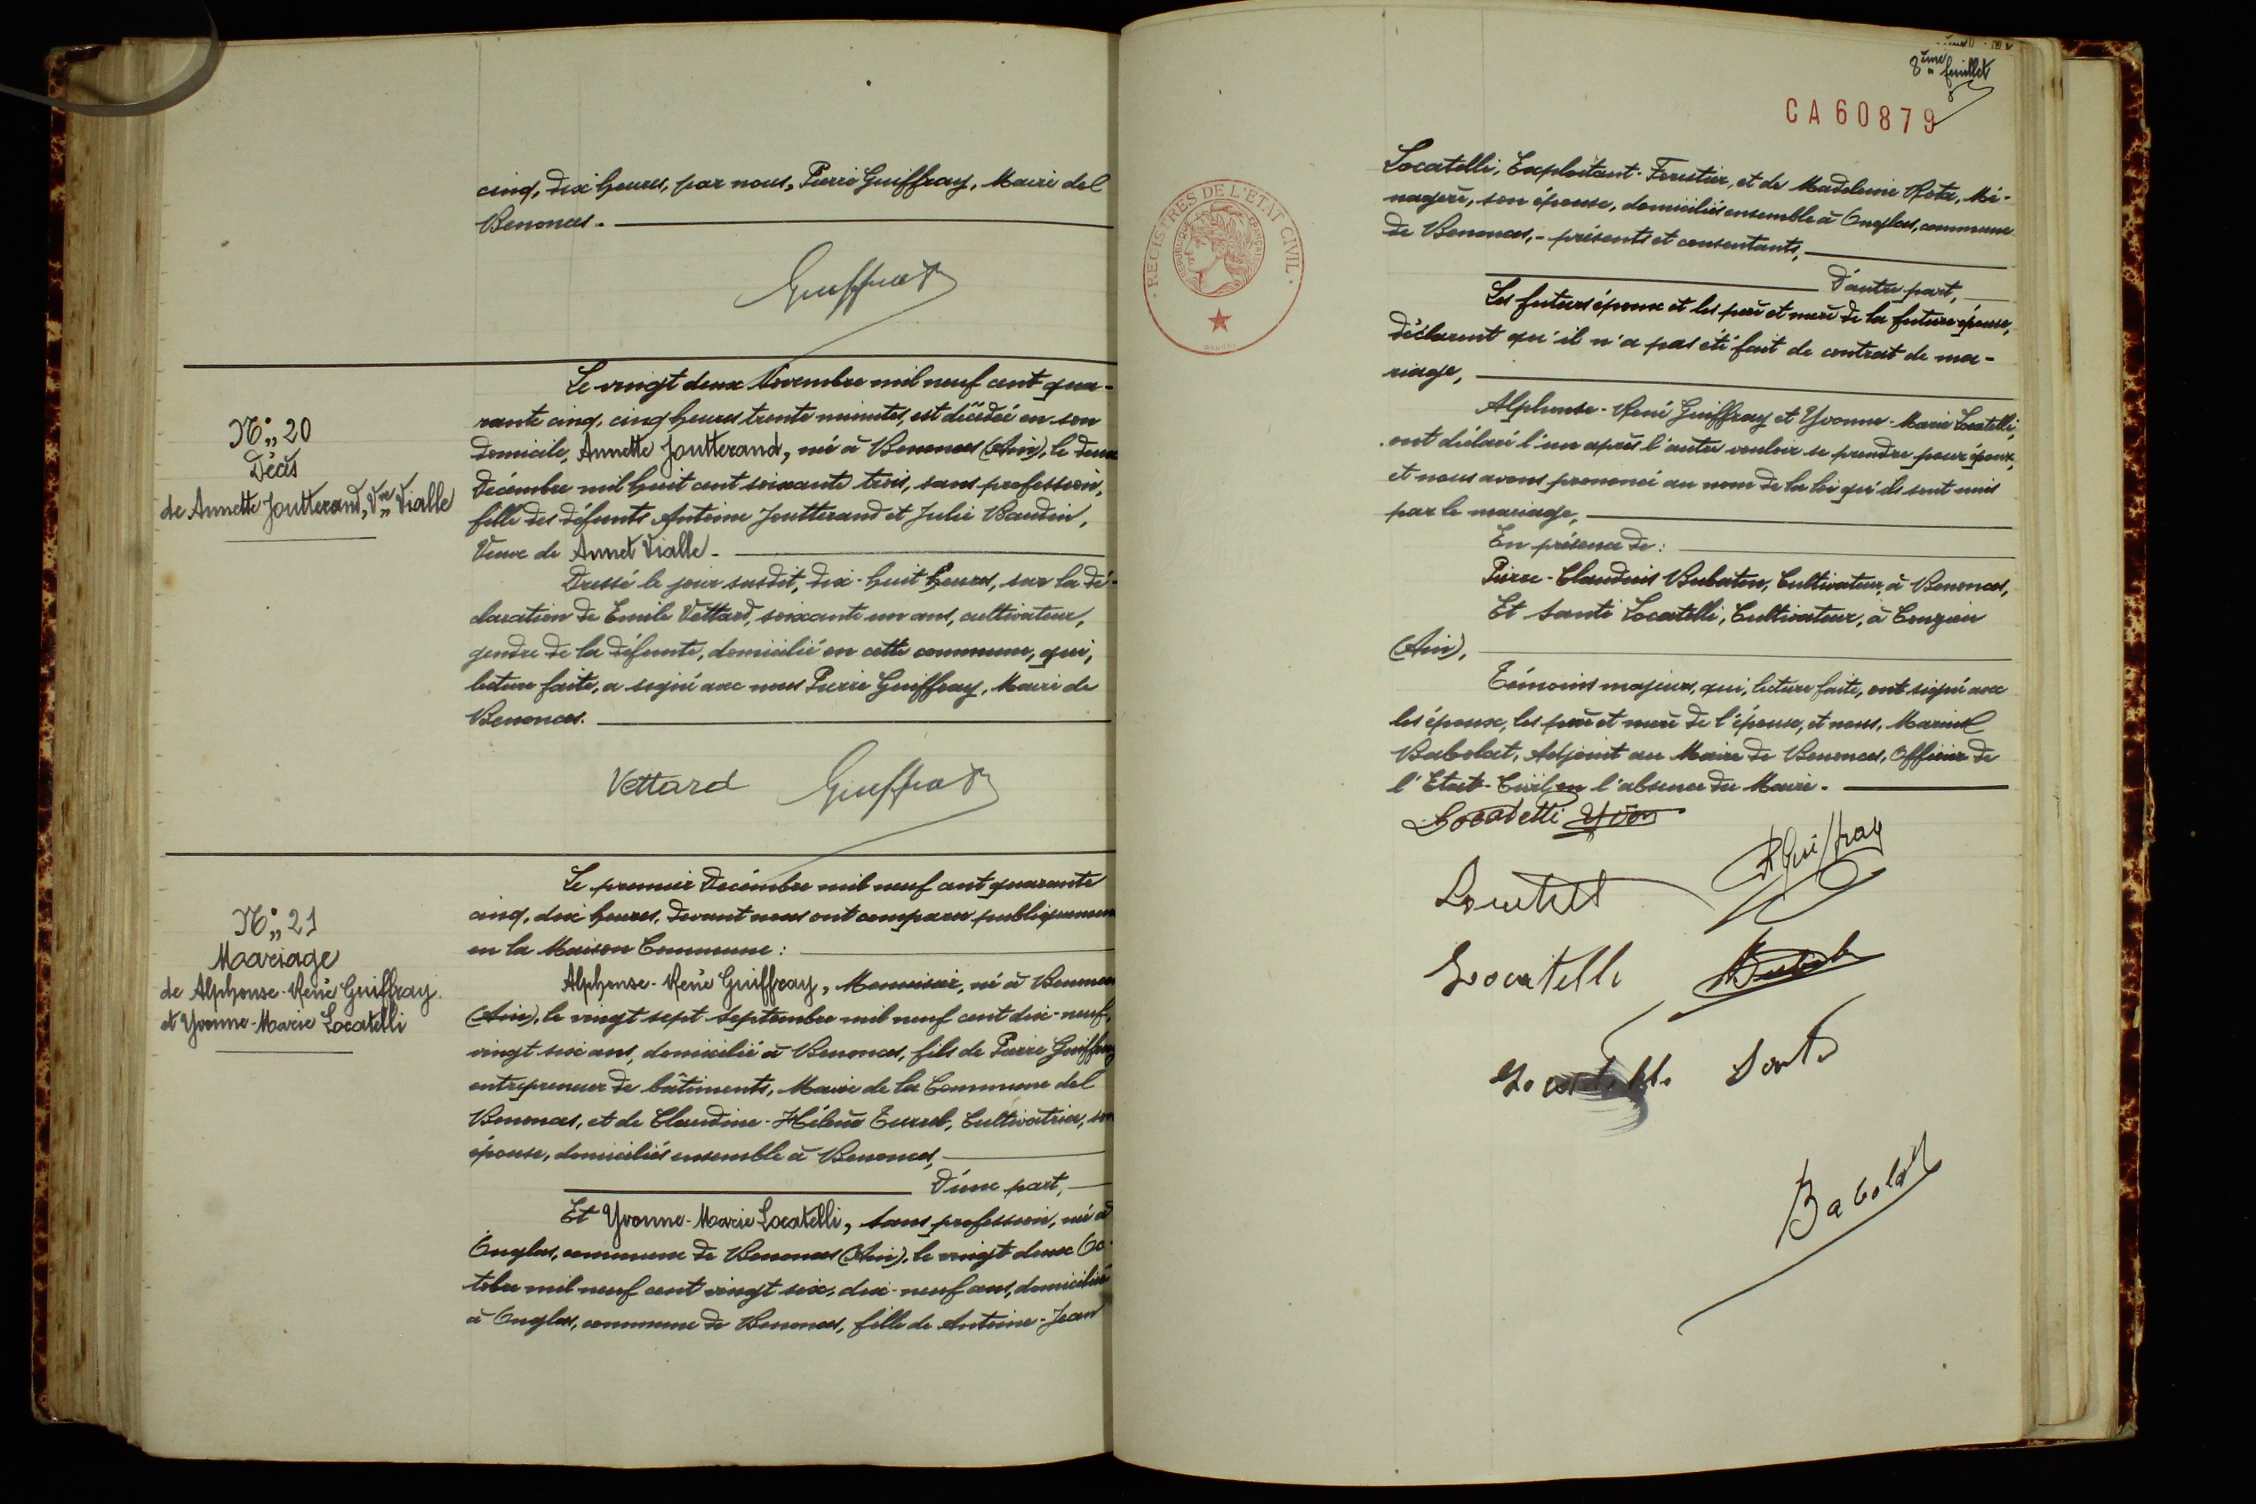 cinq, dix heures, par nous, Pierre Guiffray, Maire de
Benonces.
Guiffray
N° 20
Décès
de Annette Joutterand, Vve Vialle
Le vingt deux Novembre mil neuf cent qua-
rante cinq, cinq heures trente minutes, est décédée en son
domicile, Annette Joutterand, née à Benonces (Ain), le deux
Décembre mil huit cent soixante trois, sans profession,
fille des défunts Antoine Joutterand et Julie Baudin,
Veuve de Annet Vialle.
Dressé le jour susdit, dix-huit heures, sur la dé-
claration de Emile Vettard, soixante un ans, cultivateur,
gendre de la défunte, domicilié en cette commune, qui,
lecture faite, a signé avec nous Pierre Guiffray, Maire de
Benonces.
Vettard Guiffray
N° 21
Mariage
de Alphonse-René Guiffray
et Yvonne-Marie Locatelli
Le premier Décembre mil neuf cent quarante
cinq, dix heures, devant nous ont comparu publiquement
en la Maison Commune :
Alphonse-René Guiffray, Menuisier, né à Benonces
(Ain), le vingt sept Septembre mil neuf cent dix-neuf,
vingt six ans, domicilié à Benonces, fils de Pierre Guiffray
entrepreneur de bâtiments, Maire de la Commune de
Benonces, et de Claudine-Hélène Turrel, Cultivatrice, son
épouse, domiciliés ensemble à Benonces,
D'une part,
Et Yvonne-Marie Locatelli, sans profession, née à
Onglas, commune de Benonces (Ain), le vingt deux Oc-
tobre mil neuf cent vingt six, dix-neuf ans, domiciliée
à Onglas, commune de Benonces, fille de Antoine-Jean
8ème feuillet
CA60879
REGISTRES DE L'ETAT CIVIL
Locatelli, Exploitant-Forestier, et de Madeleine Rota, Mé-
nagère, son épouse, domiciliés ensemble à Onglas, commune
de Benonces, - présents et consentants,
D'autre part,
Les futurs époux et les père et mère de la future épouse,
déclarent qu'il n'a pas été fait de contrat de ma-
riage,
Alphonse-René Guiffray et Yvonne-Marie Locatelli,
ont déclaré l'un après l'autre vouloir se prendre pour époux,
et nous avons prononcé au nom de la loi qu'ils sont unis
par le mariage,
En présence de :
Pierre-Claudius Bubaton, Cultivateur, à Benonces,
Et Santé Locatelli, Cultivateur, à Conzieu
(Ain),
Témoins majeurs, qui, lecture faite, ont signé avec
les époux, les père et mère de l'épouse, et nous, Marius
Babolat, Adjoint au Maire de Benonces, Officier de
l'Etat-Civil en l'absence du Maire.
Locatelli Yvon
R Guiffray
Locatelli
Locatelli
Locatelli Santé
Babolat